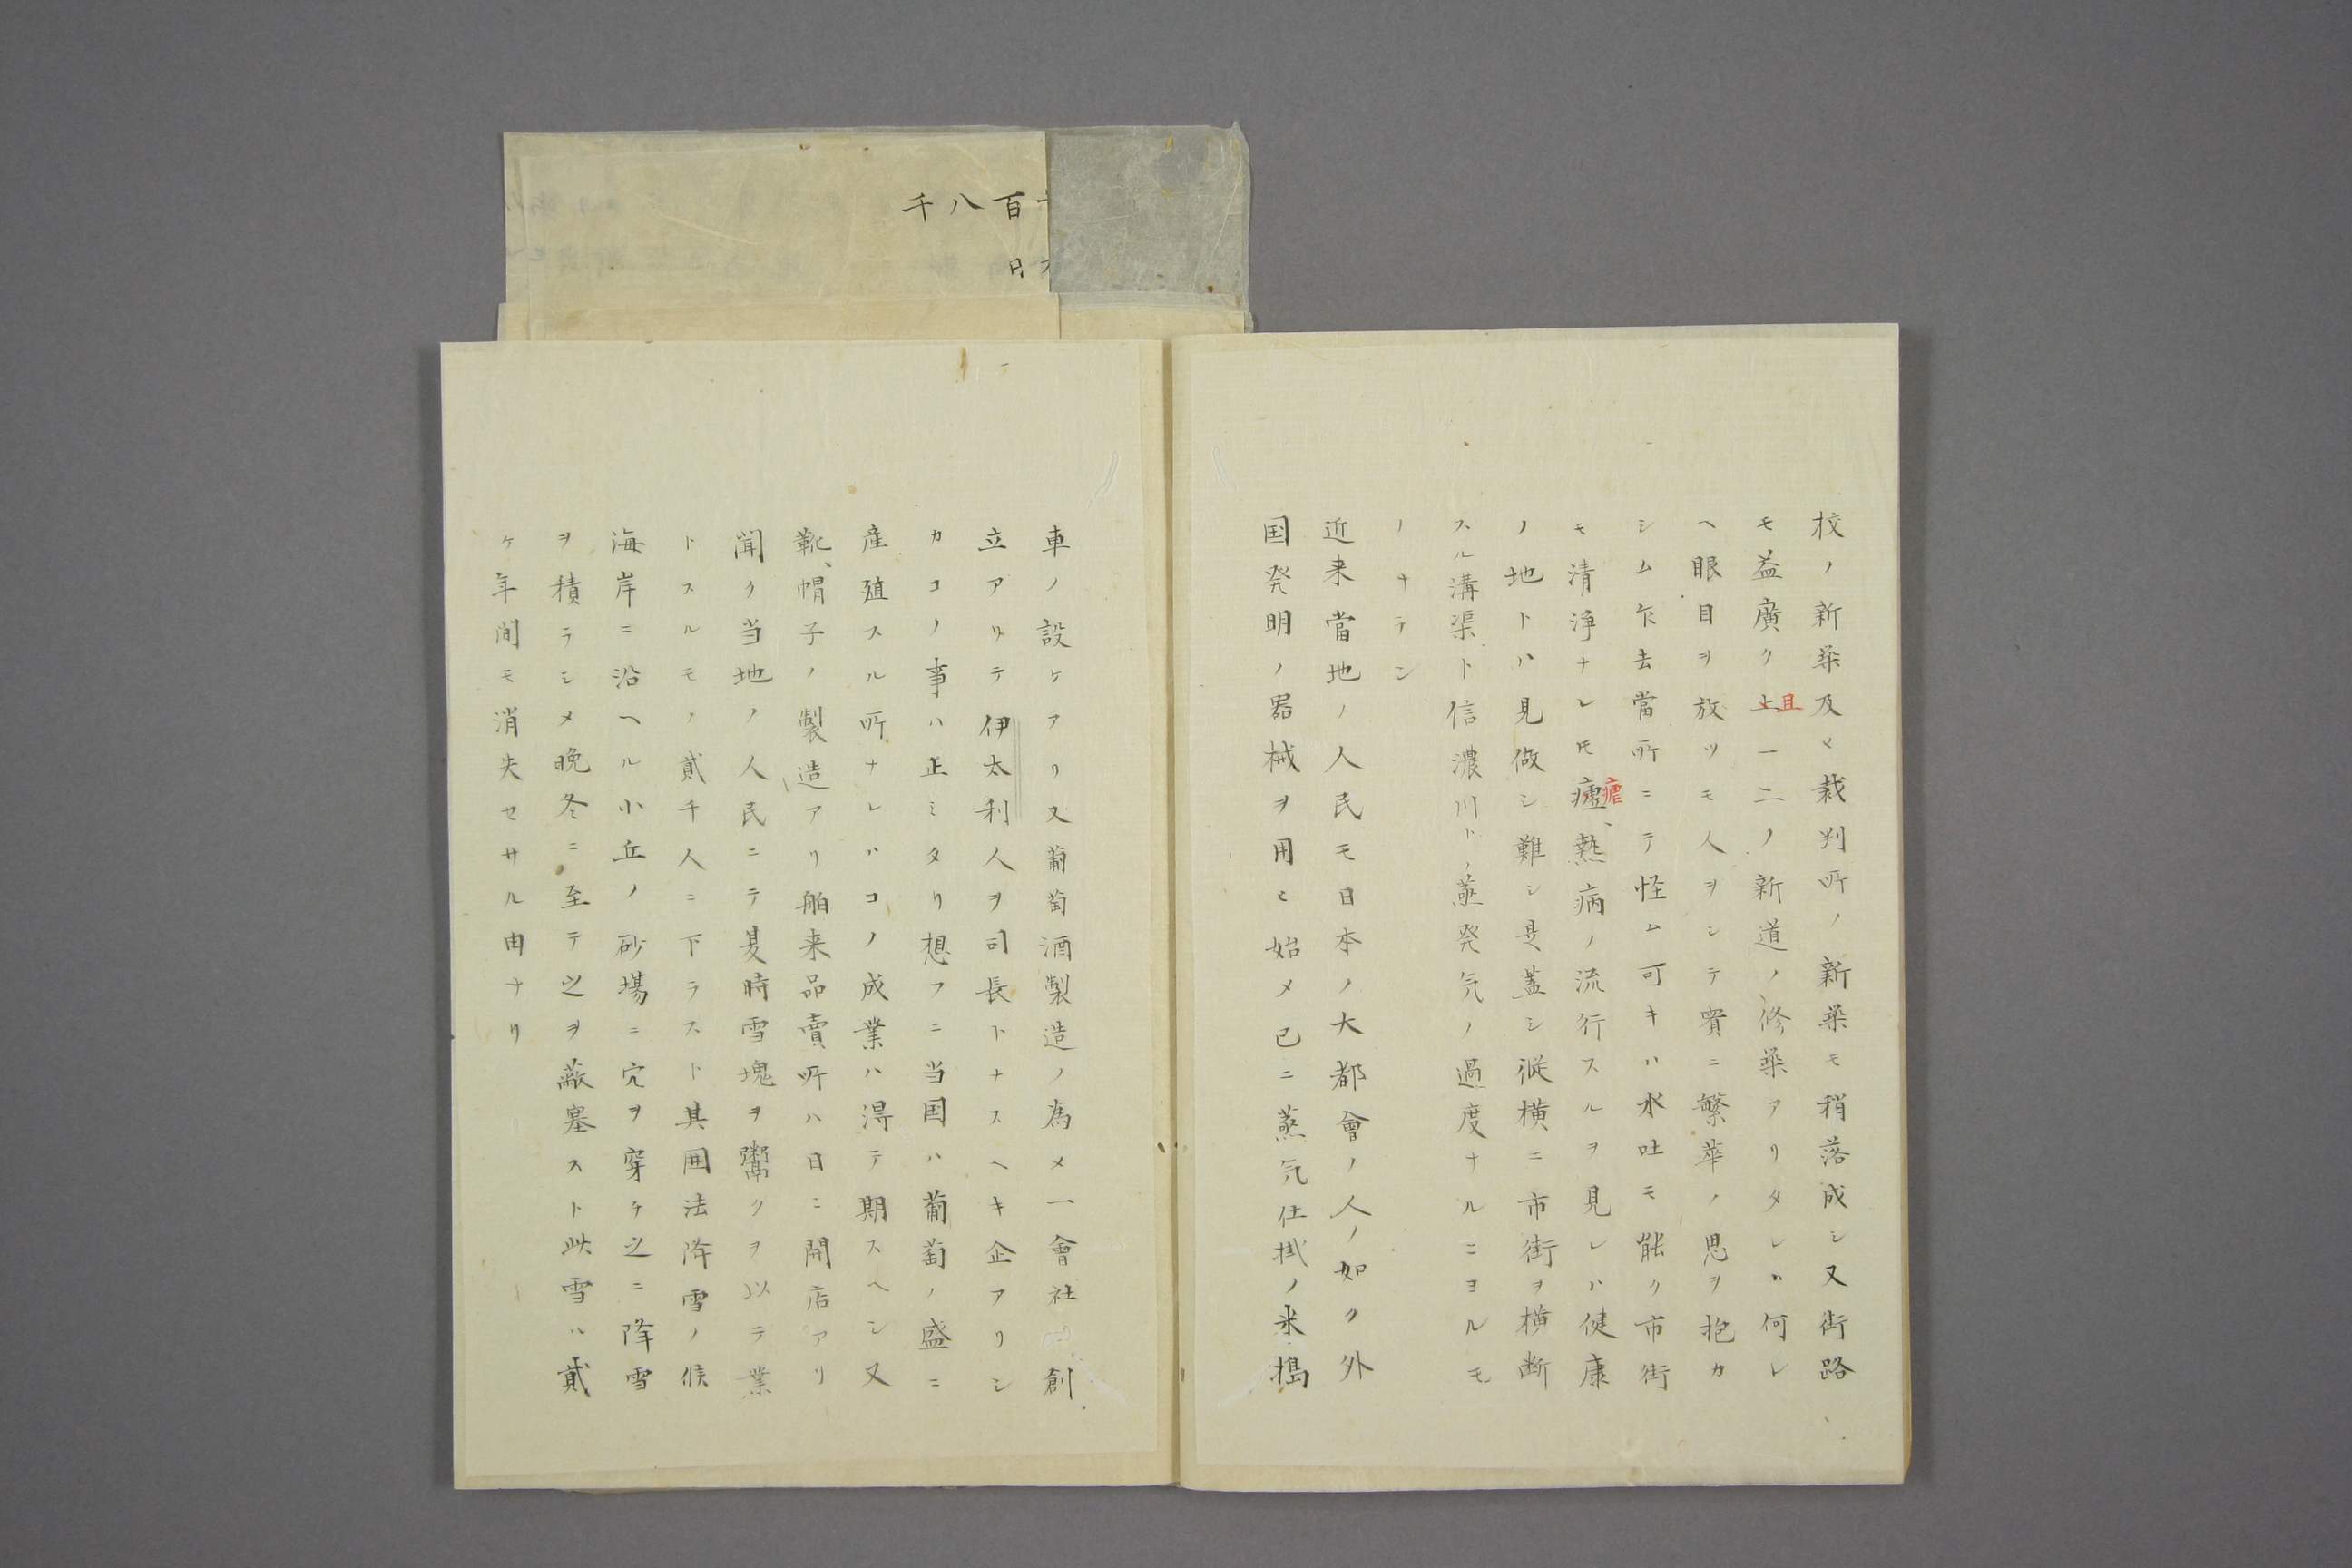 校ノ新築及ヒ裁判所ノ新築モ稍落成シ又街路
モ益廣ク且一二ノ新道ノ修築アリタレハ何レ
ヘ眼目ヲ放ツモ人ヲシテ實ニ繁華ノ思ヲ抱カ
シム乍去當所ニテ怪ム可キハ水吐モ能ク市街
モ清浄ナレ𪜈瘧熱病ノ流行スルヲ見レハ健康
ノ地トハ見做シ難シ是蓋シ縦横ニ市街ヲ横断
スル溝渠ト信濃川トノ蒸発気ノ過度ナルニヨルモ
ノナラン
近来當地ノ人民モ日本ノ大都會ノ人ノ如ク外
国発明ノ器械ヲ用ヒ始メ已ニ蒸気仕掛ノ米搗
車ノ設ケアリ又葡萄酒製造ノ為メ一會社ヲ創
立アリテ伊太利人ヲ司長トナスヘキ企アリシ
カコノ事ハ止ミタリ想フニ当国ハ葡萄ノ盛ニ
産殖スル所ナレハコノ成業ハ得テ期スヘシ又
靴、帽子ノ製造アリ舶来品賣所ハ日ニ開店アリ
聞ク当地ノ人民ニテ夏時雪塊ヲ鬻クヲ以テ業
トスルモノ貳千人ニ下ラスト其囲法降雪ノ候
海岸ニ沿ヘル小丘ノ砂場ニ穴ヲ穿チ之ニ降雪
ヲ積ラシメ晩冬ニ至テ之ヲ蔽塞スト此雪ハ貳
ケ年間モ消失セサル由ナリ
千八百
日